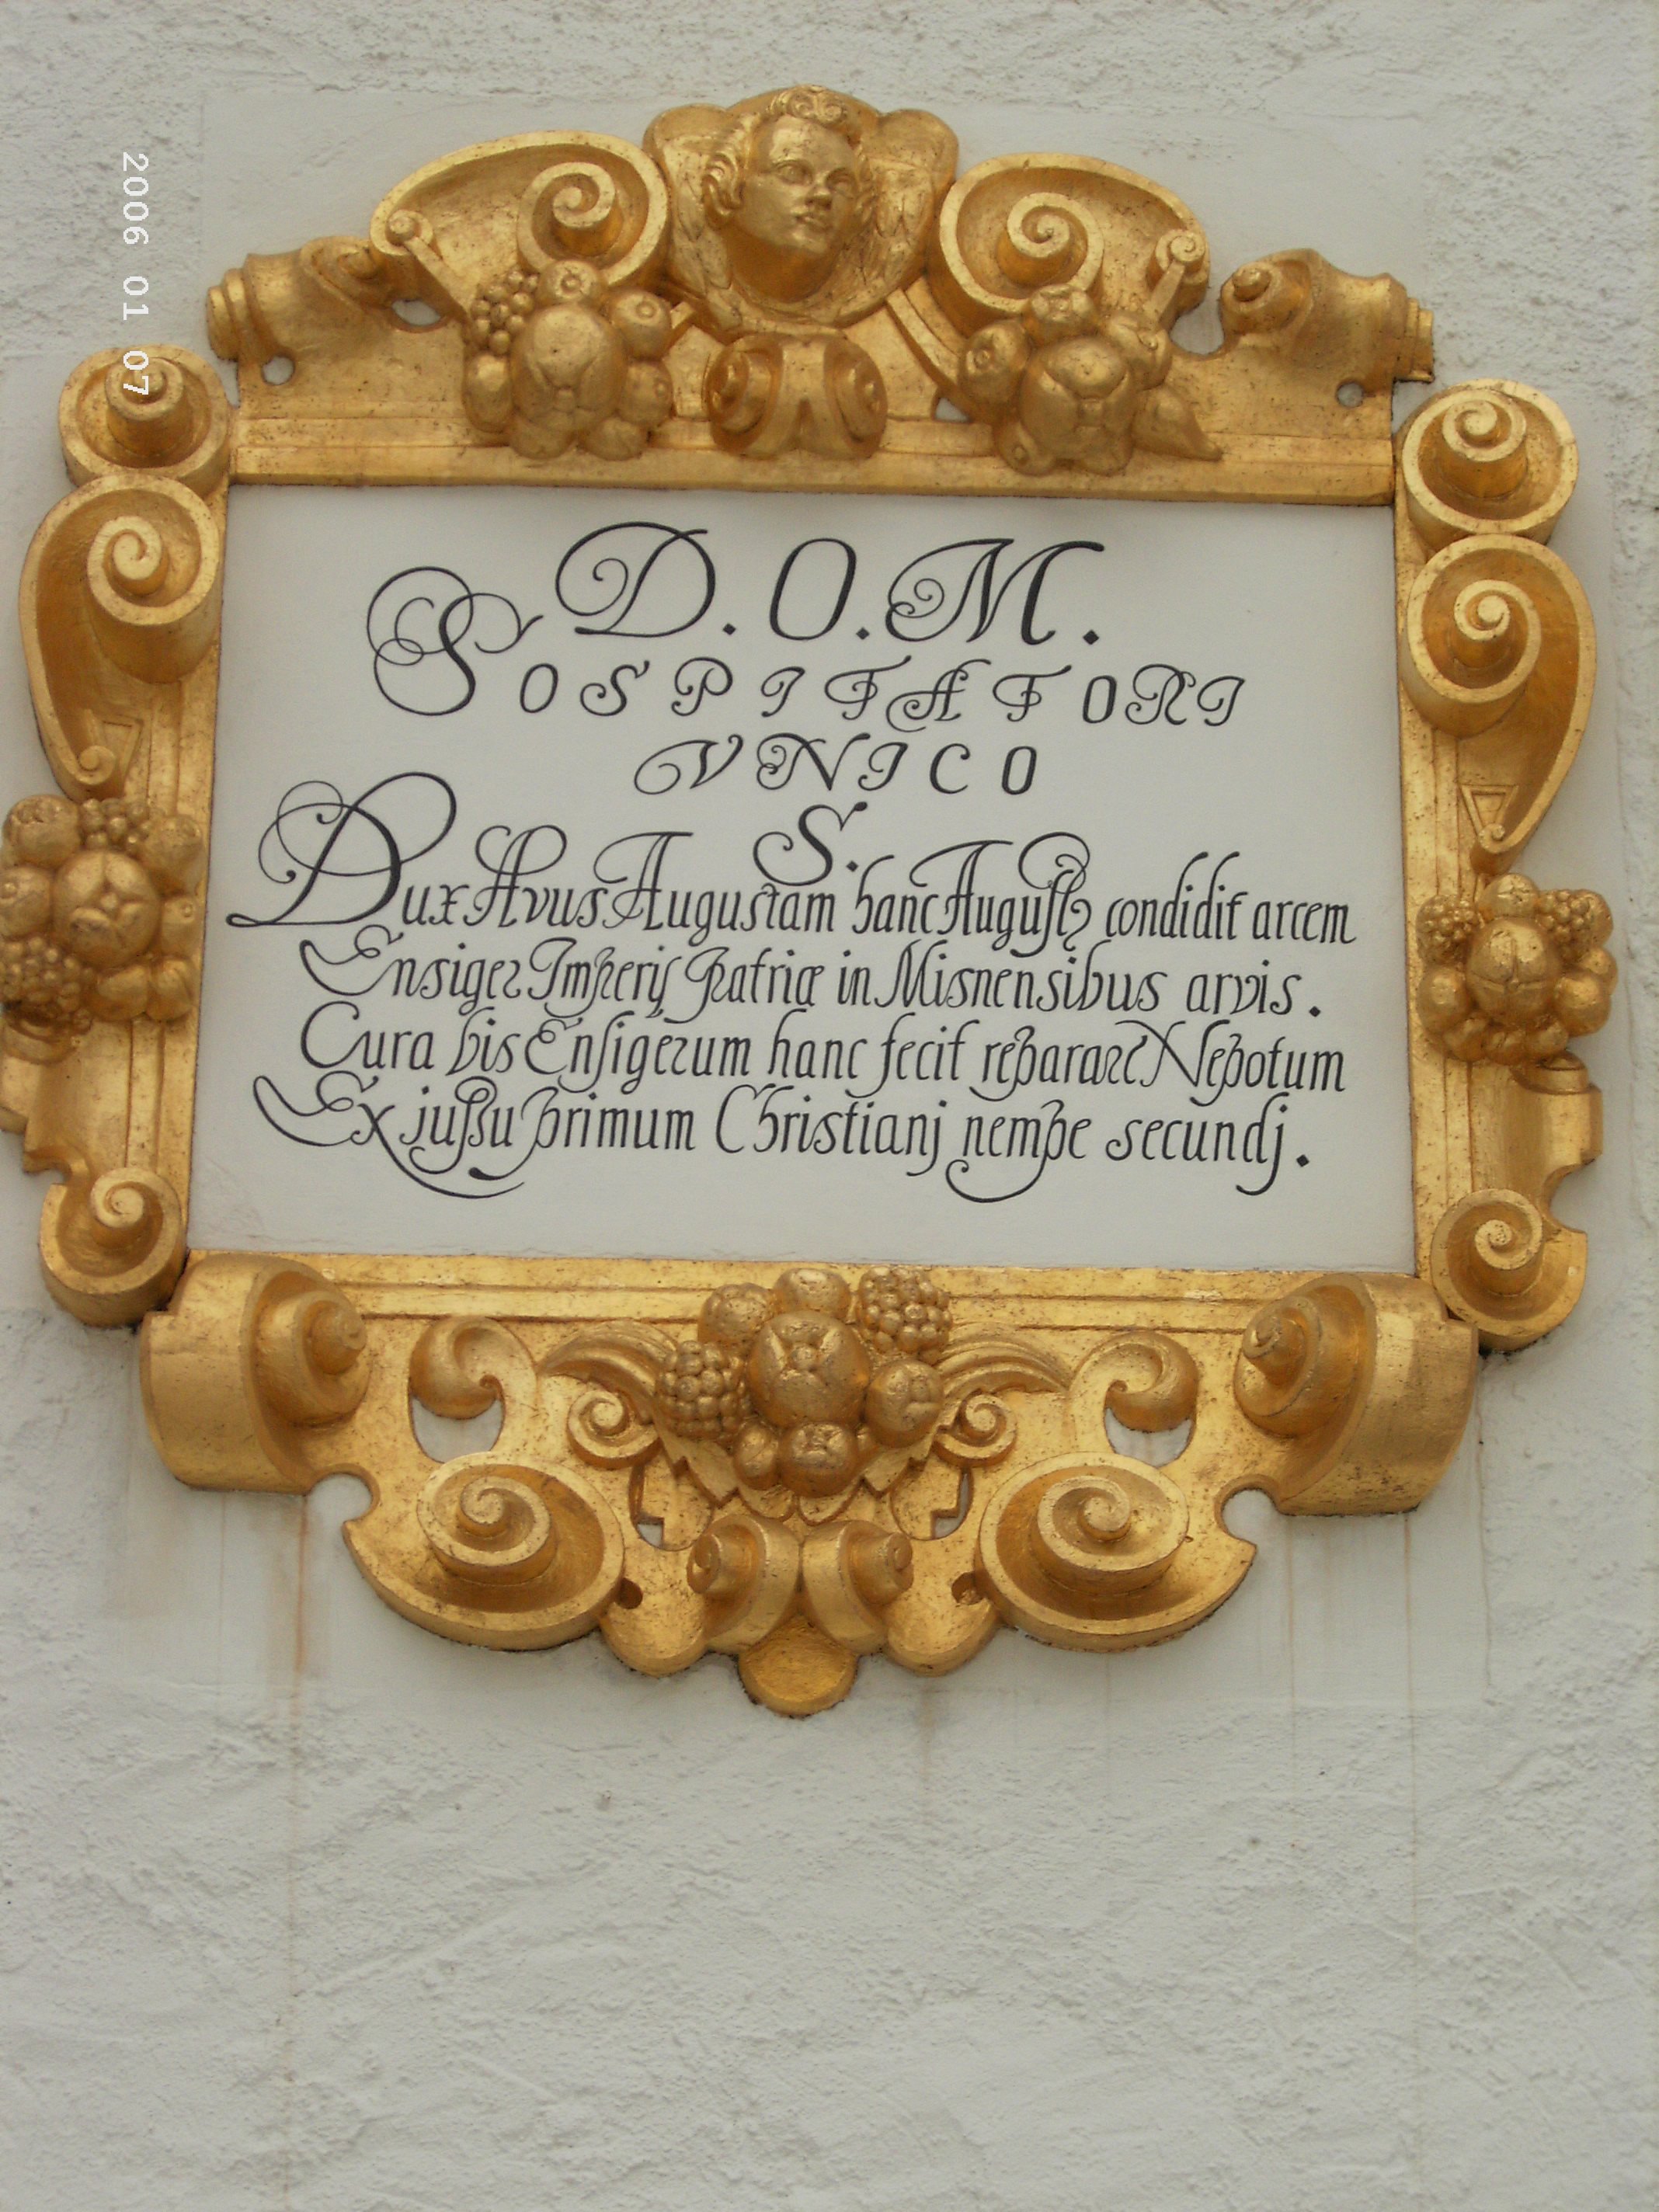 D. O. M.
SOSPITATORI
VNICO
S.
Dux Avus Augustam hanc August9 condidit arcem
Ensiger Imperij Patriæ in Misnensibus arvis.
Cura bis Ensigerum hanc fecit reparare Nepotum
Ex jussu primum Christianj nempe secundj.
2006 01 07